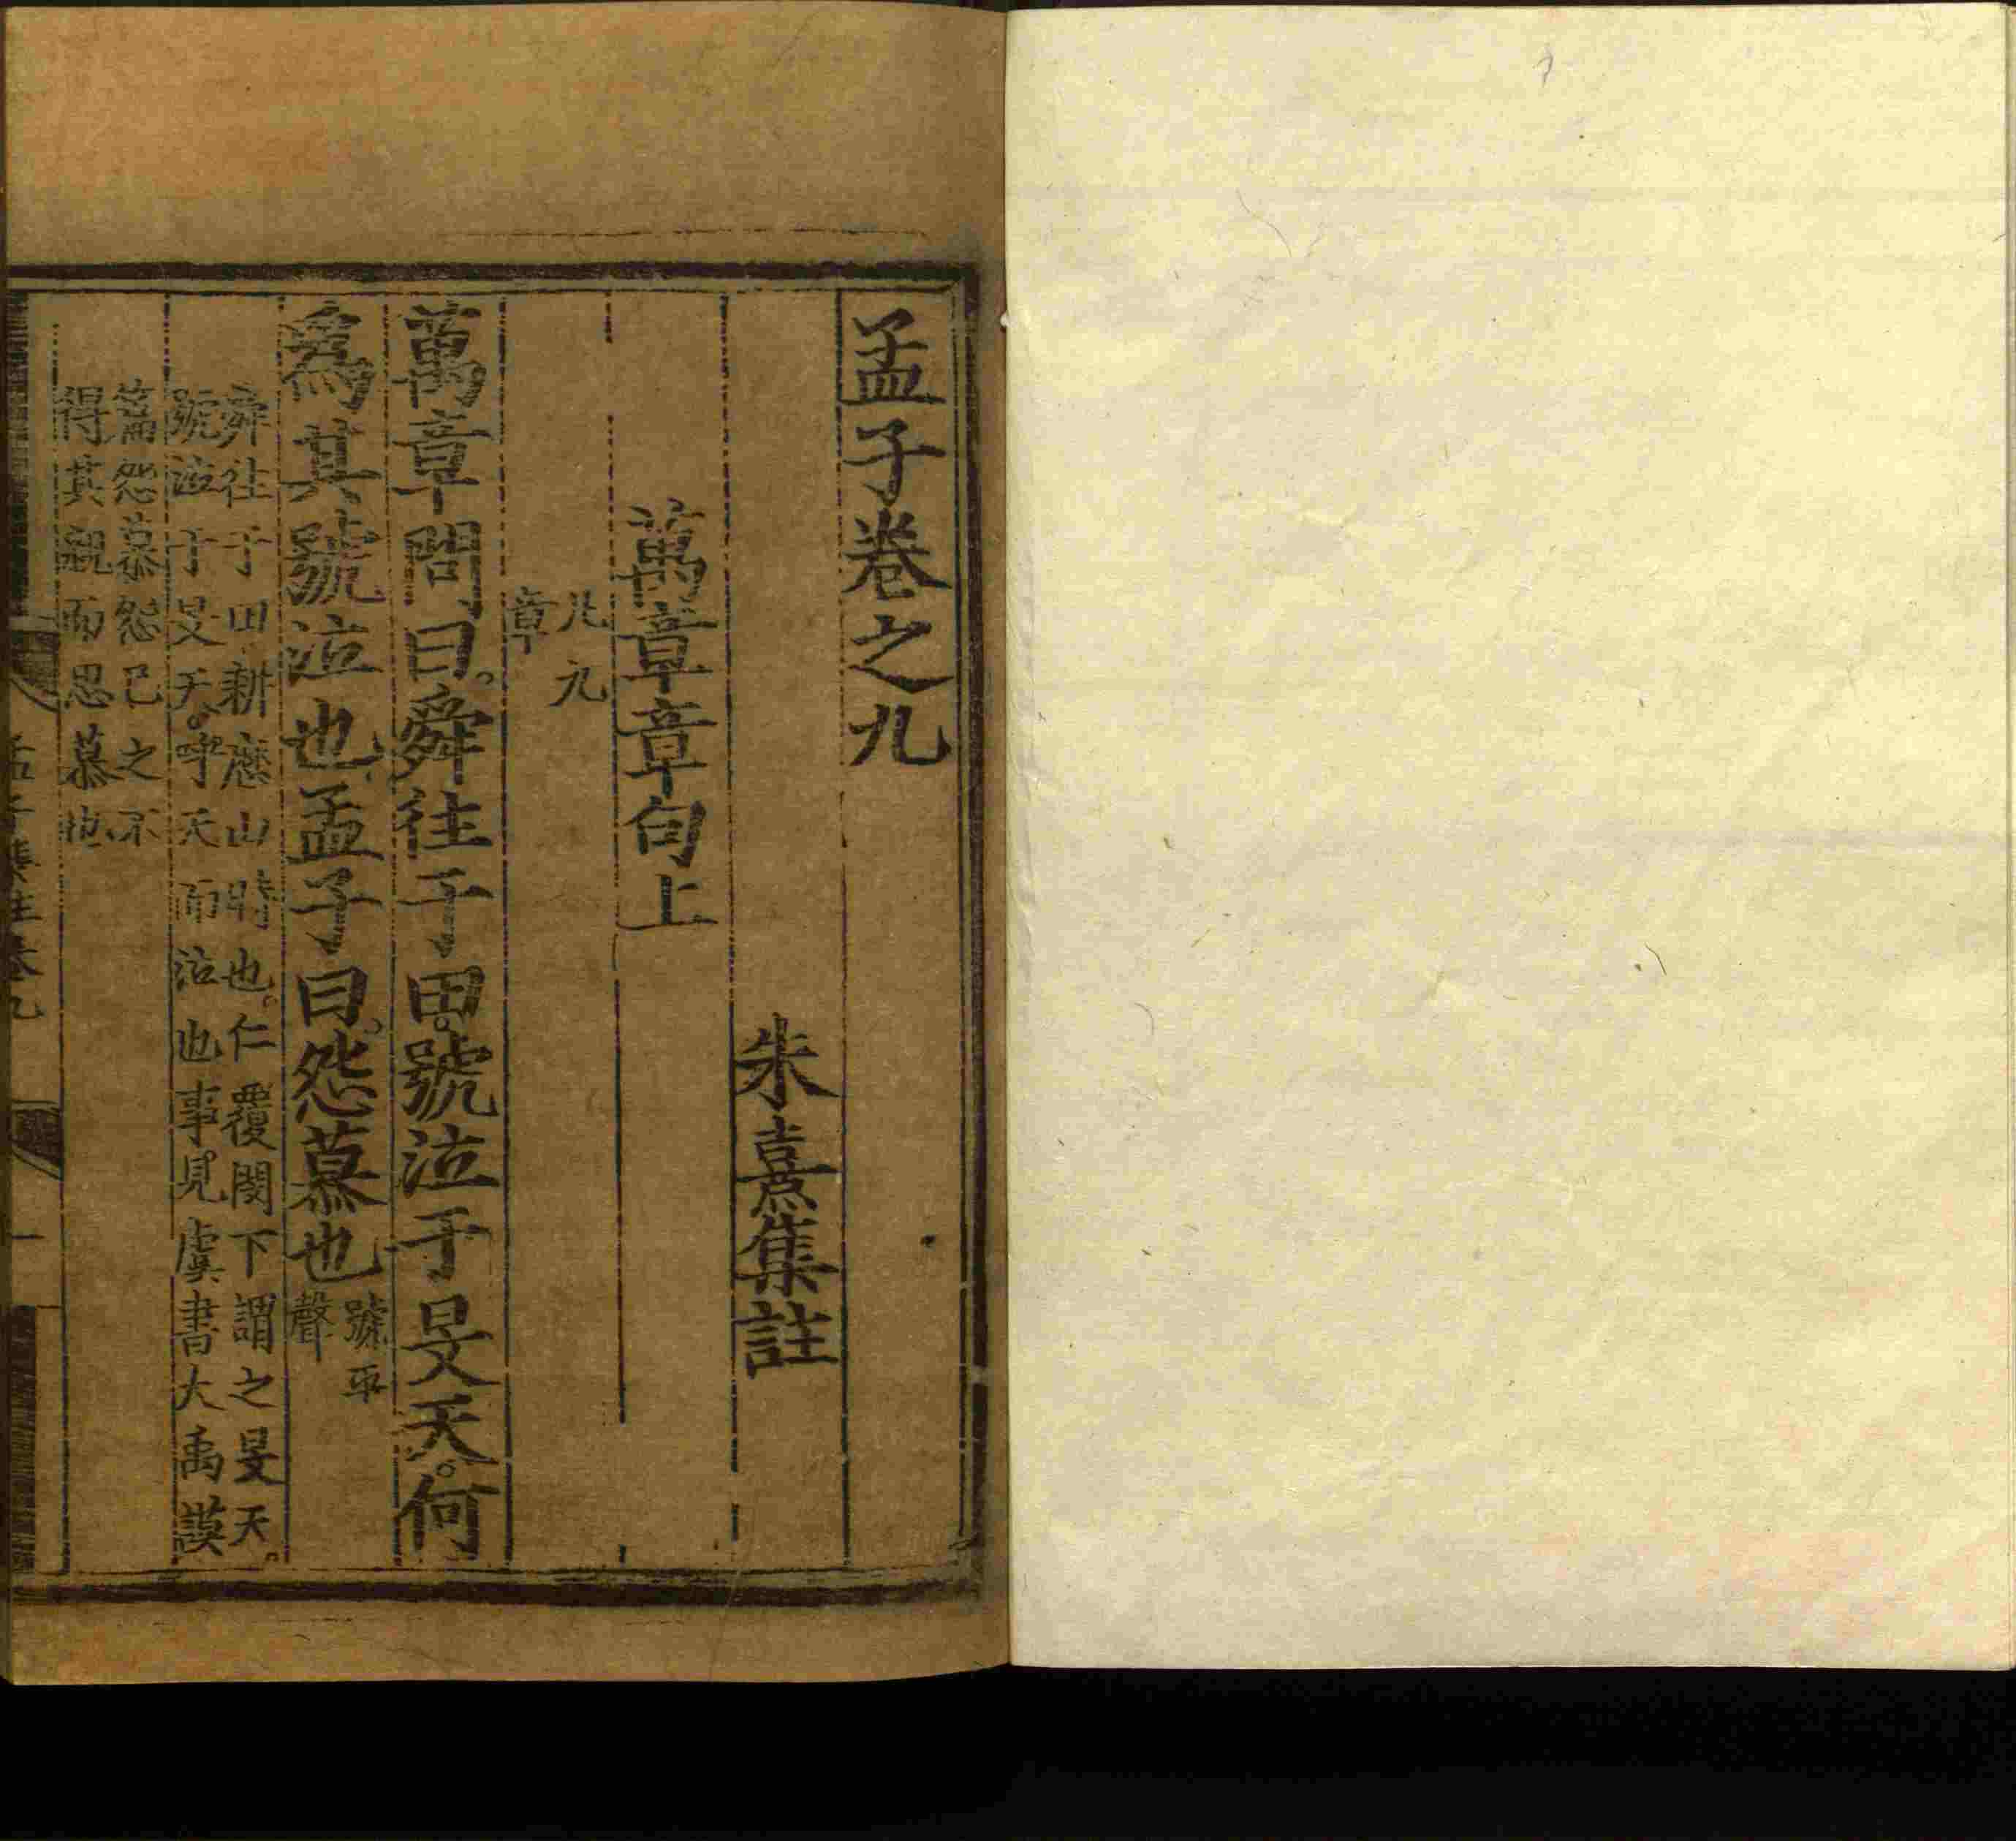 孟子卷之九
朱熹集註
萬章章句上
凡九
章
萬章問曰。舜往于田。號泣于旻天。何
爲其號泣也。孟子曰。怨慕也
號平
聲
舜往于田耕歷山時也。仁覆閔下謂之旻天。
號泣于旻天。呼天而泣也事見虞書大禹謨
篇怨慕怨己之不
得其親而思慕也
孟子集註卷九
一